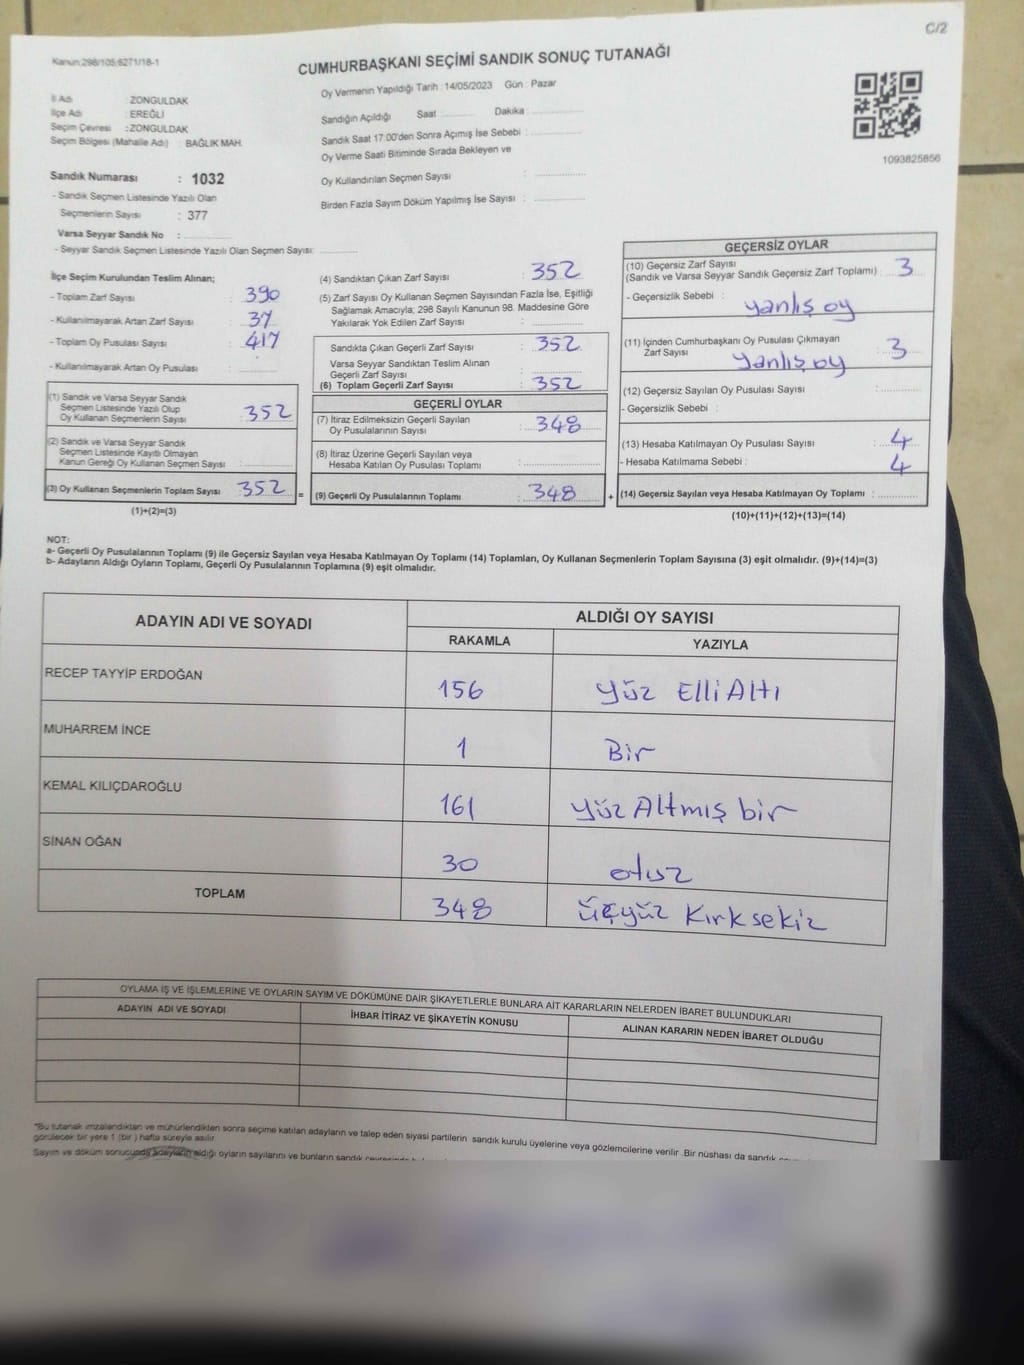 C/2
Kanun:298/105;6271/18-1
CUMHURBAŞKANI SEÇİMİ SANDIK SONUÇ TUTANAĞI
İl Adı : ZONGULDAK
İlçe Adı : EREĞLİ
Seçim Çevresi : ZONGULDAK
Seçim Bölgesi (Mahalle Adı) : BAĞLIK MAH.
Oy Vermenin Yapıldığı Tarih : 14/05/2023 Gün : Pazar
Sandığın Açıldığı Saat Dakika
Sandık Saat 17:00'den Sonra Açımış İse Sebebi :
Oy Verme Saati Bitiminde Sırada Bekleyen ve
Oy Kullandırılan Seçmen Sayısı :
Birden Fazla Sayım Döküm Yapılmış İse Sayısı :
1093825856
Sandık Numarası : 1032
- Sandık Seçmen Listesinde Yazılı Olan
Seçmenlerin Sayısı : 377
Varsa Seyyar Sandık No :
- Seyyar Sandık Seçmen Listesinde Yazılı Olan Seçmen Sayısı:
İlçe Seçim Kurulundan Teslim Alınan;
- Toplam Zarf Sayısı : 390
- Kullanılmayarak Artan Zarf Sayısı : 37
- Toplam Oy Pusulası Sayısı : 417
- Kullanılmayarak Artan Oy Pusulası :
(1) Sandık ve Varsa Seyyar Sandık
Seçmen Listesinde Yazılı Olup
Oy Kullanan Seçmenlerin Sayısı : 352
(2) Sandık ve Varsa Seyyar Sandık
Seçmen Listesinde Kayıtlı Olmayan
Kanun Gereği Oy Kullanan Seçmen Sayısı :
(3) Oy Kullanan Seçmenlerin Toplam Sayısı : 352 =
(1)+(2)=(3)
(4) Sandıktan Çıkan Zarf Sayısı : 352
(5) Zarf Sayısı Oy Kullanan Seçmen Sayısından Fazla İse, Eşitliği
Sağlamak Amacıyla; 298 Sayılı Kanunun 98. Maddesine Göre
Yakılarak Yok Edilen Zarf Sayısı :
Sandıkta Çıkan Geçerli Zarf Sayısı : 352
Varsa Seyyar Sandıktan Teslim Alınan
Geçerli Zarf Sayısı :
(6) Toplam Geçerli Zarf Sayısı : 352
GEÇERLİ OYLAR
(7) İtiraz Edilmeksizin Geçerli Sayılan
Oy Pusulalarının Sayısı : 348
(8) İtiraz Üzerine Geçerli Sayılan veya
Hesaba Katılan Oy Pusulası Toplamı :
(9) Geçerli Oy Pusulalarının Toplamı : 348 +
GEÇERSİZ OYLAR
(10) Geçersiz Zarf Sayısı
(Sandık ve Varsa Seyyar Sandık Geçersiz Zarf Toplamı) : 3
- Geçersizlik Sebebi : yanlış oy
(11) İçinden Cumhurbaşkanı Oy Pusulası Çıkmayan
Zarf Sayısı : 3
yanlış oy
(12) Geçersiz Sayılan Oy Pusulası Sayısı :
- Geçersizlik Sebebi :
(13) Hesaba Katılmayan Oy Pusulası Sayısı : 4
- Hesaba Katılmama Sebebi : 4
(14) Geçersiz Sayılan veya Hesaba Katılmayan Oy Toplamı :
(10)+(11)+(12)+(13)=(14)
NOT:
a- Geçerli Oy Pusulalarının Toplamı (9) ile Geçersiz Sayılan veya Hesaba Katılmayan Oy Toplamı (14) Toplamları, Oy Kullanan Seçmenlerin Toplam Sayısına (3) eşit olmalıdır. (9)+(14)=(3)
b- Adayların Aldığı Oyların Toplamı, Geçerli Oy Pusulalarının Toplamına (9) eşit olmalıdır.
ADAYIN ADI VE SOYADI ALDIĞI OY SAYISI
RAKAMLA YAZIYLA
RECEP TAYYİP ERDOĞAN 156 Yüz Elli Altı
MUHARREM İNCE 1 Bir
KEMAL KILIÇDAROĞLU 161 Yüz Altmış bir
SİNAN OĞAN 30 otuz
TOPLAM 348 üçyüz Kırk sekiz
OYLAMA İŞ VE İŞLEMLERİNE VE OYLARIN SAYIM VE DÖKÜMÜNE DAİR ŞİKAYETLERLE BUNLARA AİT KARARLARIN NELERDEN İBARET BULUNDUKLARI
ADAYIN ADI VE SOYADI İHBAR İTİRAZ VE ŞİKAYETİN KONUSU ALINAN KARARIN NEDEN İBARET OLDUĞU
"Bu tutanak imzalandıktan ve mühürlendikten sonra seçime katılan adayların ve talep eden siyasi partilerin sandık kurulu üyelerine veya gözlemcilerine verilir .Bir nüshası da sandık
görülecek bir yere 1 (bir ) hafta süreyle asılır
Sayım ve döküm sonucunda adayların aldığı oyların sayılarını ve bunların sandık